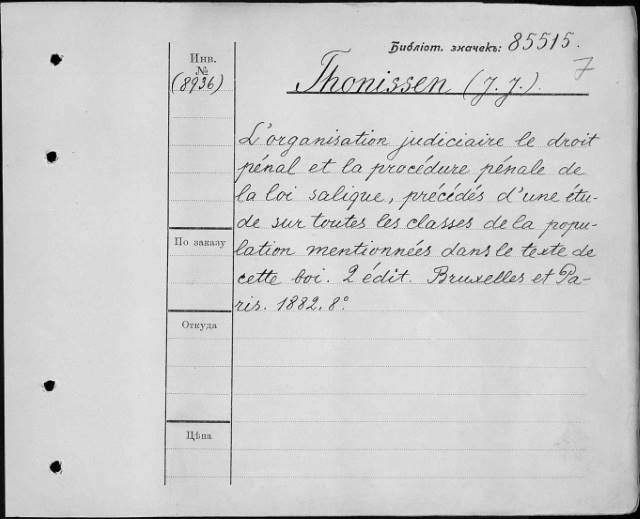 Библіот. значекъ: 85515.
7
Инв.
№
(8936)
Thonissen (J. J.).
L'organisation judiciaire le droit
pénal et la procédure pénale de
la loi salique, précédés d'une étu-
de sur toutes les classes de la popu-
lation mentionnées dans le texte de
cette loi. 2 édit. Bruxelles et Pa-
ris. 1882. 8°.
По заказу
Откуда
Цѣна